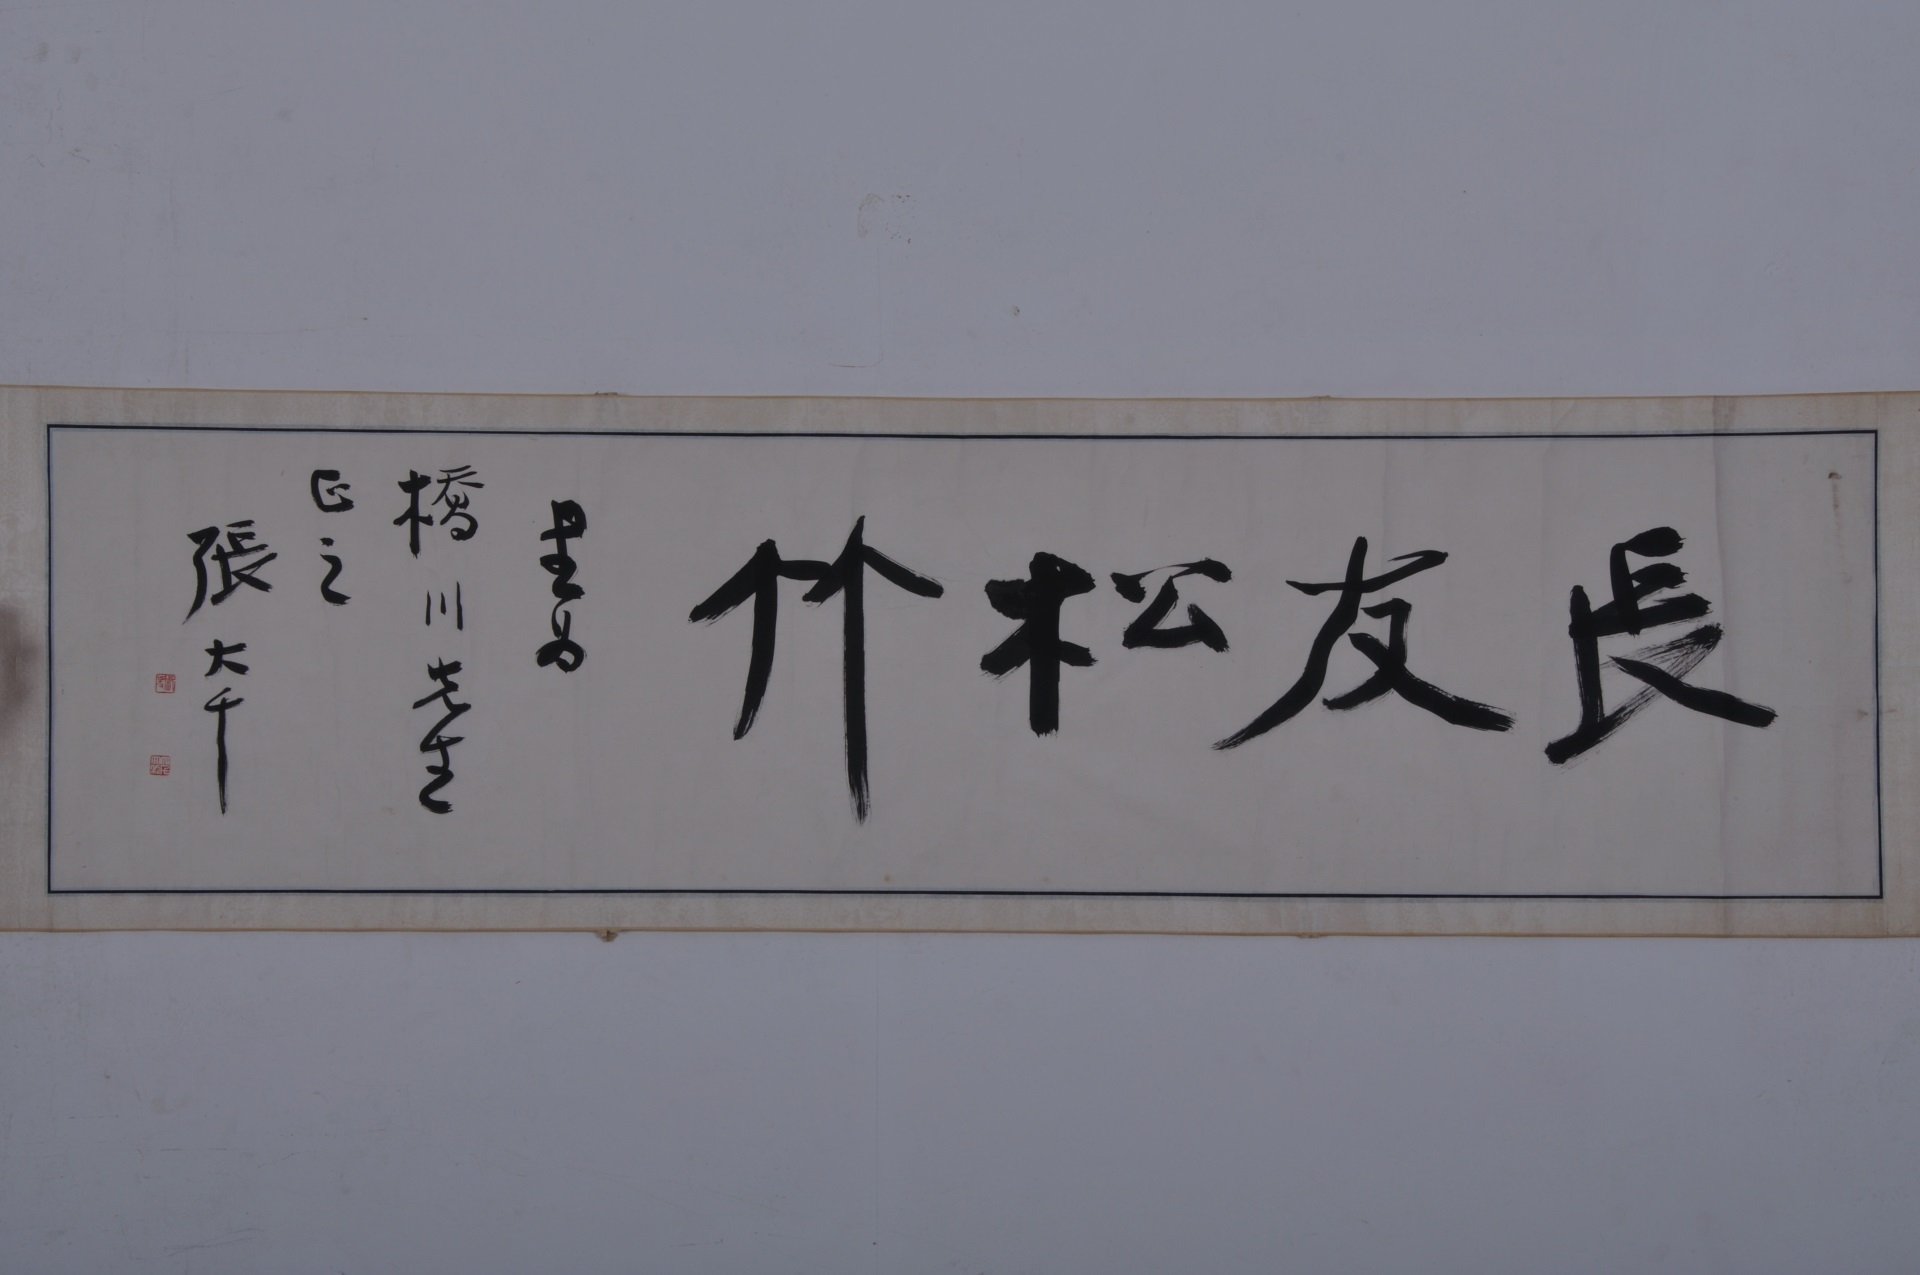 長友松竹
書為
橋川先生
正之
張大千